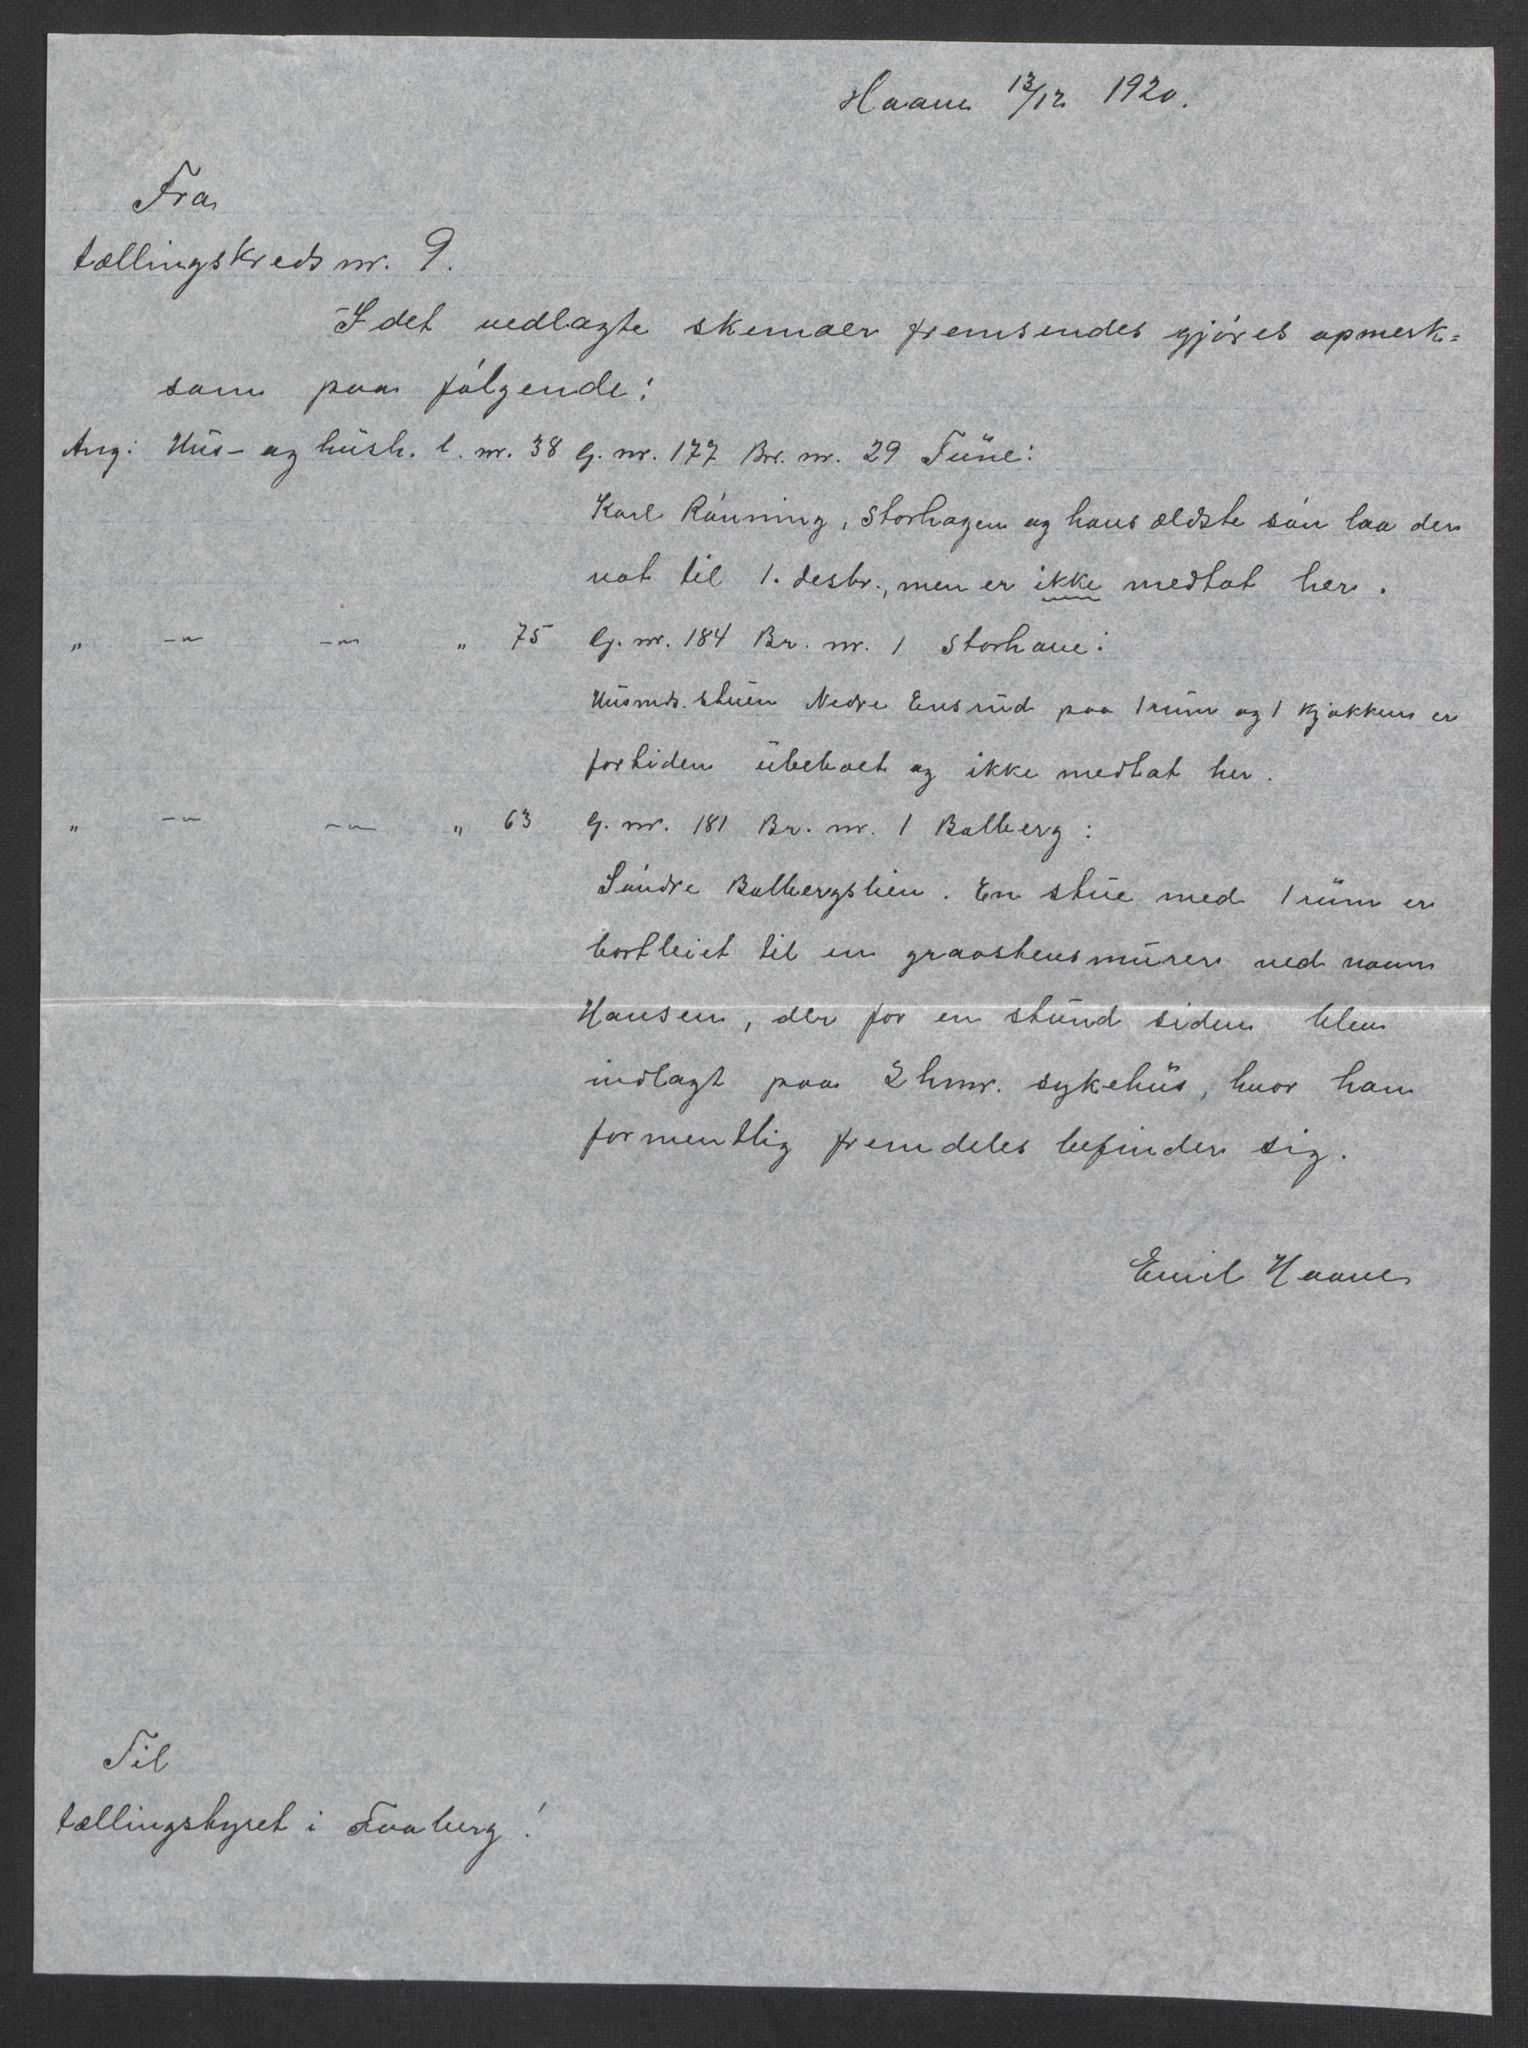 Haave 13/12 1920.
Fra
tællingskreds nr. 9.
Idet vedlagte skemaer fremsendes gjøres opmerk=
som paa følgende:
Ang: Hus- og hush. l. nr. 38 G. nr. 177 Br. nr. 29 Tune:
Karl Rønning, Storhagen og hans ældste søn laa der
nat til 1. desbr., men er ikke medtat her.
" -"- -"- " 75 G. nr. 184 Br. nr. 1 Storhove:
Husmds. stuen Nedre Ensrud paa 1 rum og 1 kjøkken er
fortiden ubeboet og ikke medtat her.
" -"- -"- " 63 G. nr. 181 Br. nr. 1 Balberg:
Søndre Balbergslien. En stue med 1 rum er
bortleiet til en graastensmurer ved navn
Hansen, der for en stund siden blev
indlagt paa Lhmr. sykehus, hvor han
formentlig fremdeles befinder sig.
Emil Haave
Til
tællingstyret i Faaberg!